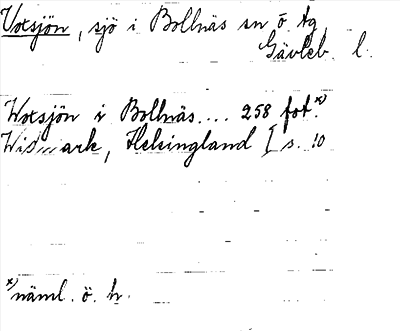 Voxsjön, sjö i Bollnäs sn o. tg
Gävleb. l.
Woxsjön i Bollnäs.... 258 fot.x)
Widmark, Helsingland I s. 10
x) näml. ö. h.